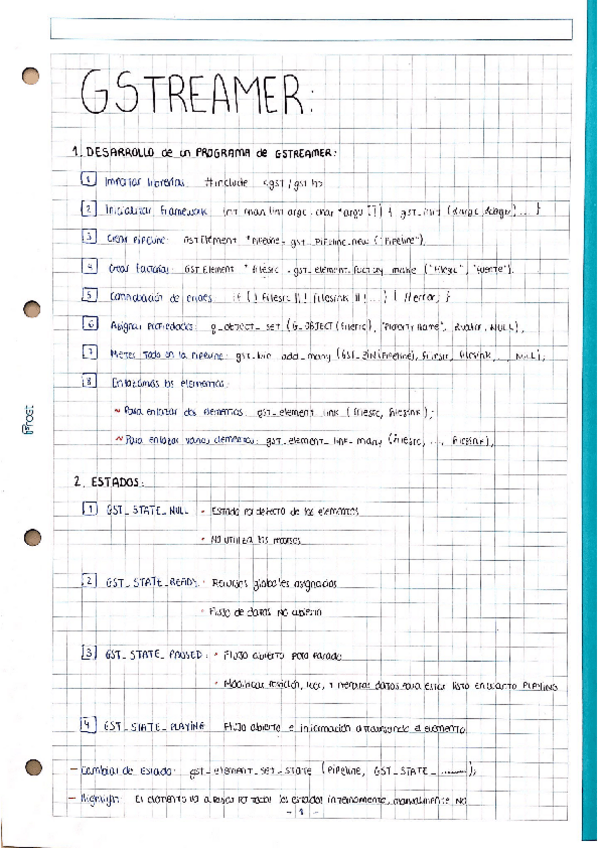 GSTREAMER:
1. DESARROLLO de un PROGRAMA de GSTREAMER:
1 Importar librerías: #include <gst/gst.h>
2 Inicializar framework: int main (int argc, char *argv[]) { gst_init (&argc, &argv)... }
3 Crear Pipeline: GstElement *Pipeline = gst_Pipeline_new ("Pipeline"),
4 Crear factorías: GST Element * filesrc = gst_element_factory_make ("filesrc", "fuente").
5 Comprobación de errores: if ( ! filesrc || ! filesink || ! ... ) { //error; }
6 Asignar Propiedades: g_OBJECT_SET (G_OBJECT (filesrc), "Property name", &valor, NULL),
7 Meter todo en la Pipeline: gst_bin_add_many (GST_BIN(Pipeline), filesrc, filesink, ..., NULL),
8 Enlazamos los elementos:
~ Para enlazar dos elementos: gst_element_link (filesrc, filesink);
~ Para enlazar varios elementos: gst_element_link_many (filesrc, ..., filesink),
2. ESTADOS:
1 GST_STATE_NULL • Estado por defecto de los elementos
• No utiliza los recursos
2 GST_STATE_READY: • Recursos globales asignados
• Flujo de datos NO abierto
3 GST_STATE_PAUSED: • Flujo abierto pero parado
• Modificar posición, leer, y preparar datos para estar listo en cuanto PLAYING
4 GST_STATE_PLAYING Flujo abierto e información atravesando el elemento
- Cambiar de Estado: gst_element_set_state (Pipeline, GST_STATE_........);
- Highlight: El elemento va a pasar por todos los estados internamente, manualmente NO
- 1 -